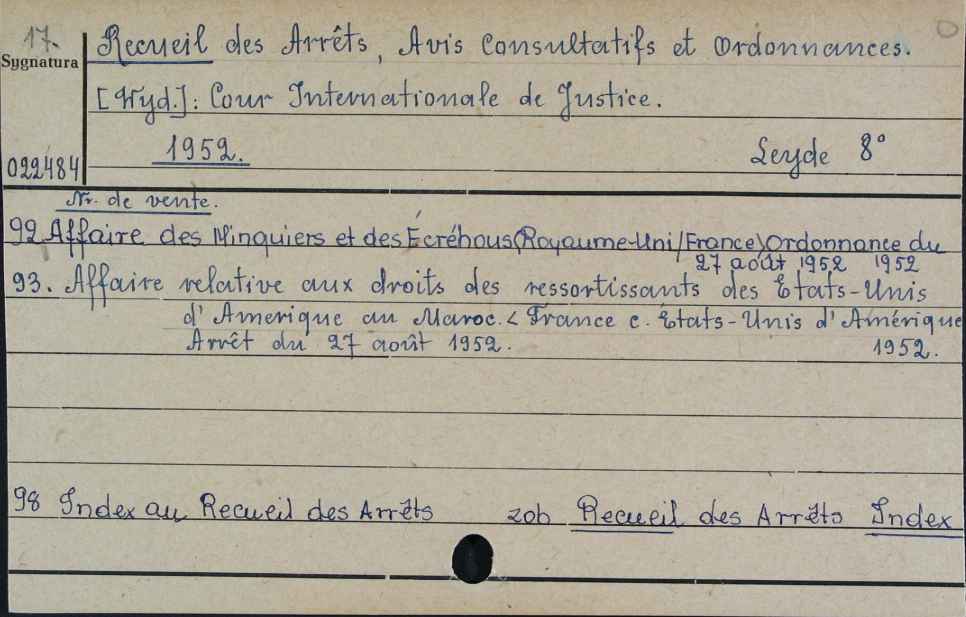 17.
Sygnatura
022484
Recueil des Arrêts, Avis Consultatifs et Ordonnances.
[Wyd.]: Cour Internationale de Justice.
1952. Leyde 8°
Nr. de vente.
92 Affaire des Minquiers et des Écréhous (Royaume-Uni/France) Ordonnance du
27 août 1952 1952
93. Affaire relative aux droits des ressortissants des États-Unis
d'Amerique au Maroc. < France c. États-Unis d'Amérique
Arrêt du 27 août 1952. 1952.
98 Index au Recueil des Arrêts zob Recueil des Arrêts Index